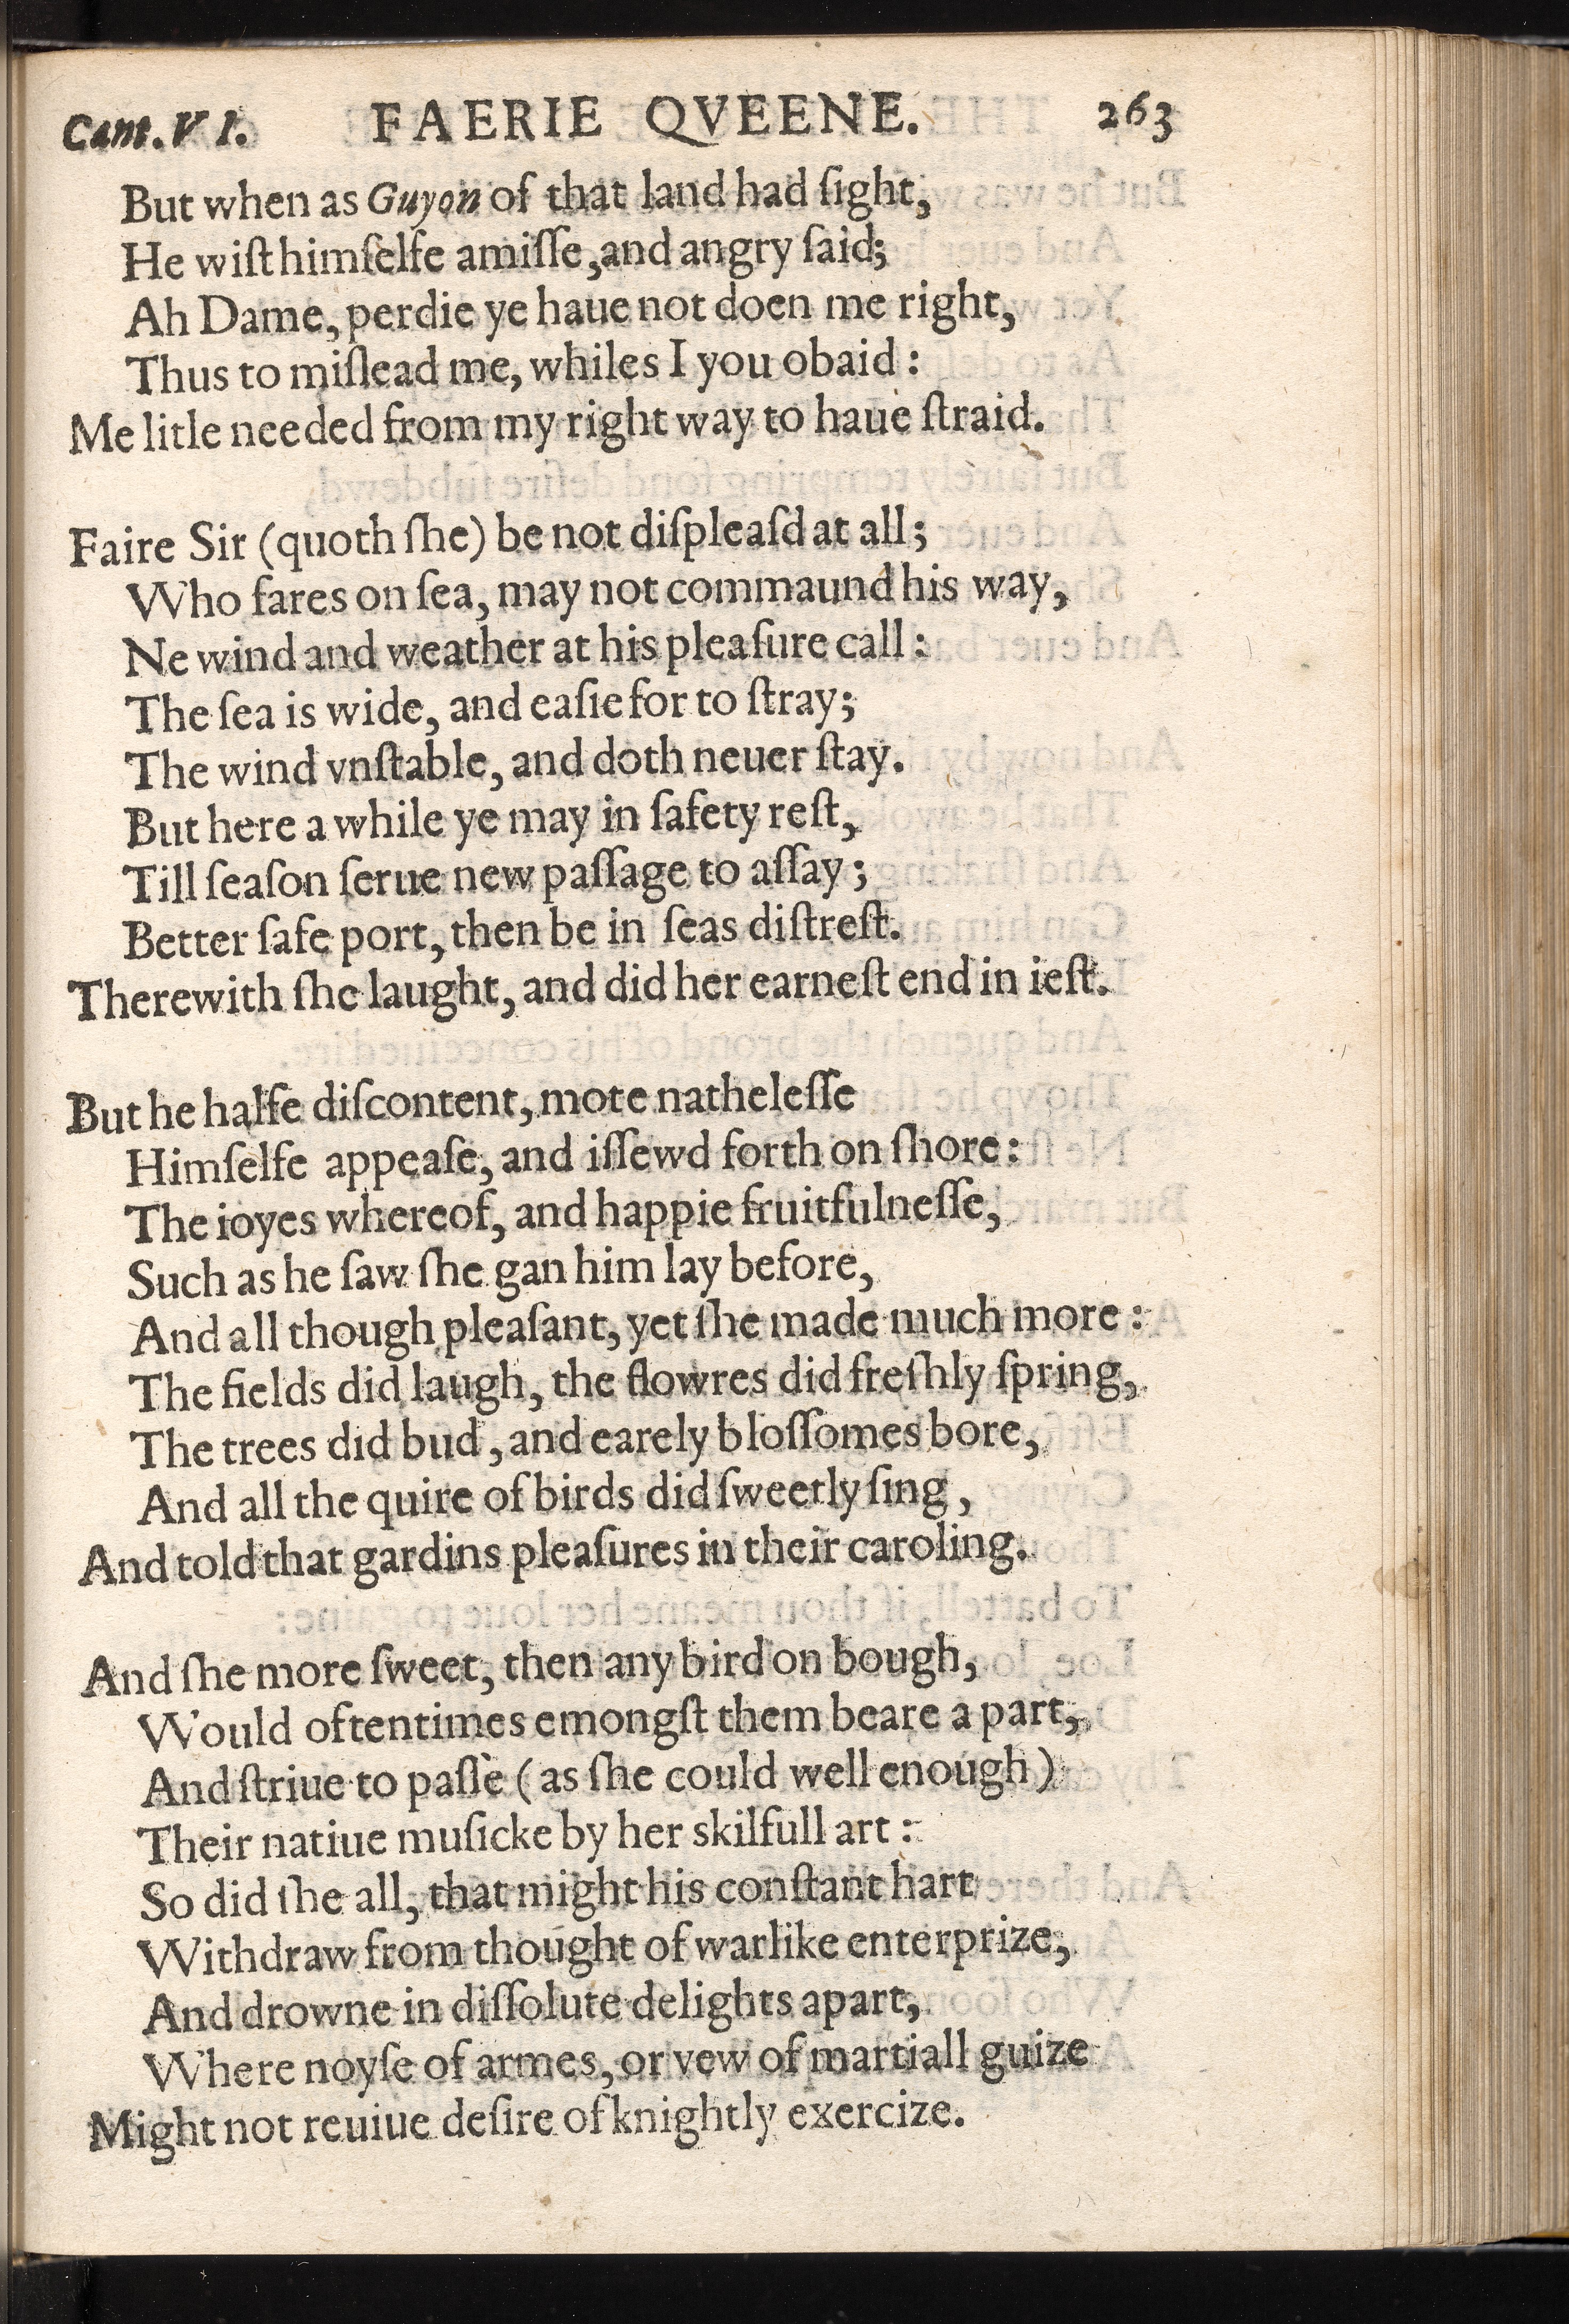 Cant. V I. FAERIE QVEENE. 263
But when as Guyon of that land had ſight,
He wiſt himſelfe amiſſe, and angry ſaid;
Ah Dame, perdie ye haue not doen me right,
Thus to miſlead me, whiles I you obaid:
Me litle needed from my right way to haue ſtraid.
Faire Sir (quoth ſhe) be not diſpleaſd at all;
Who fares on ſea, may not commaund his way,
Ne wind and weather at his pleaſure call:
The ſea is wide, and eaſie for to ſtray;
The wind vnſtable, and doth neuer ſtay.
But here a while ye may in ſafety reſt,
Till ſeaſon ſerue new paſſage to aſſay;
Better ſafe port, then be in ſeas diſtreſt.
Therewith ſhe laught, and did her earneſt end in ieſt.
But he halfe diſcontent, mote natheleſſe
Himſelfe appeaſe, and iſſewd forth on ſhore:
The ioyes whereof, and happie fruitfulneſſe,
Such as he ſaw ſhe gan him lay before,
And all though pleaſant, yet ſhe made much more:
The fields did laugh, the flowres did freſhly ſpring,
The trees did bud, and earely bloſſomes bore,
And all the quire of birds did ſweetly ſing,
And told that gardins pleaſures in their caroling.
And ſhe more ſweet, then any bird on bough,
Would oftentimes emongſt them beare a part,
And ſtriue to paſſe (as ſhe could well enough)
Their natiue muſicke by her skilfull art:
So did ſhe all, that might his conſtant hart
Withdraw from thought of warlike enterprize,
And drowne in diſſolute delights apart,
Where noyſe of armes, or vew of martiall guize
Might not reuiue deſire of knightly exercize.